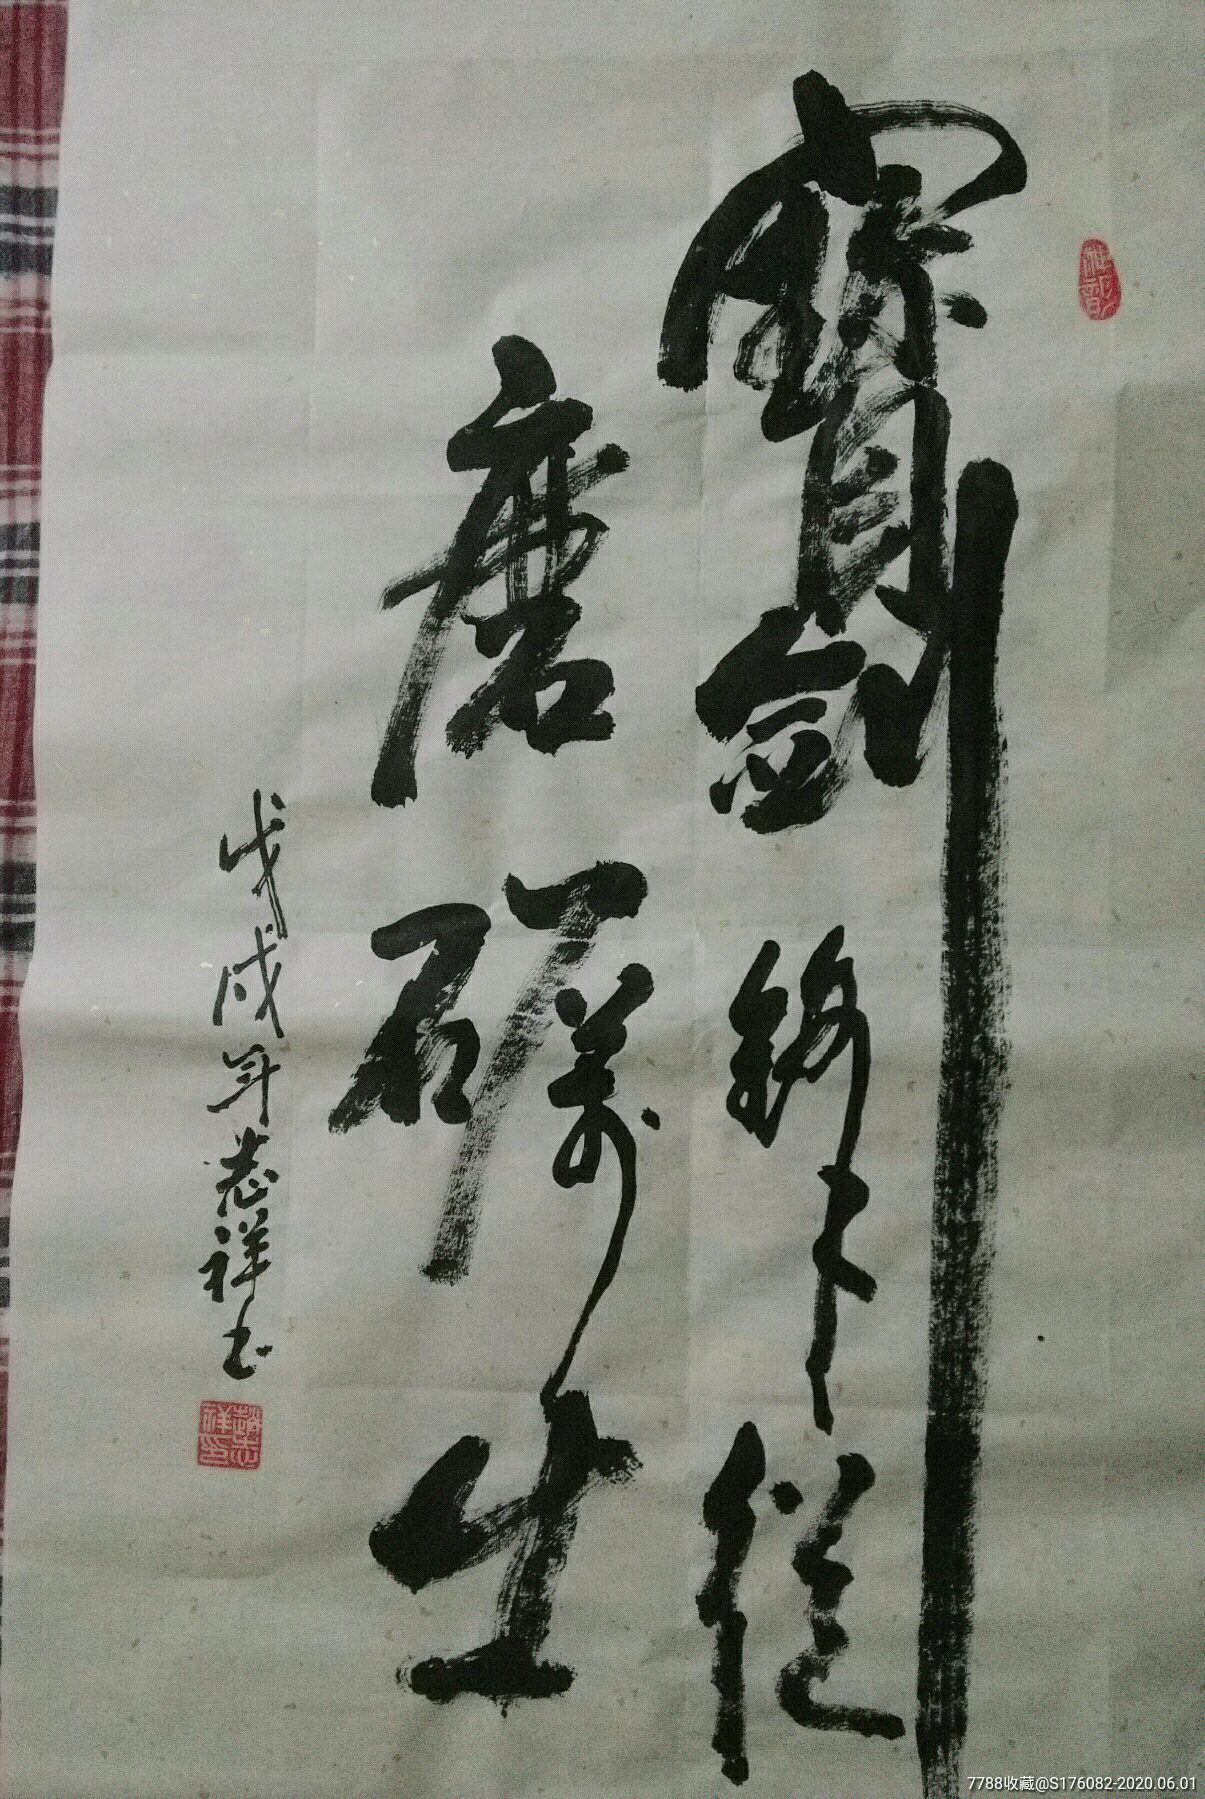 寶劍鋒從
磨礪出
戊戌年志祥书
趙志祥印
7788收藏@S176082-2020.06.01